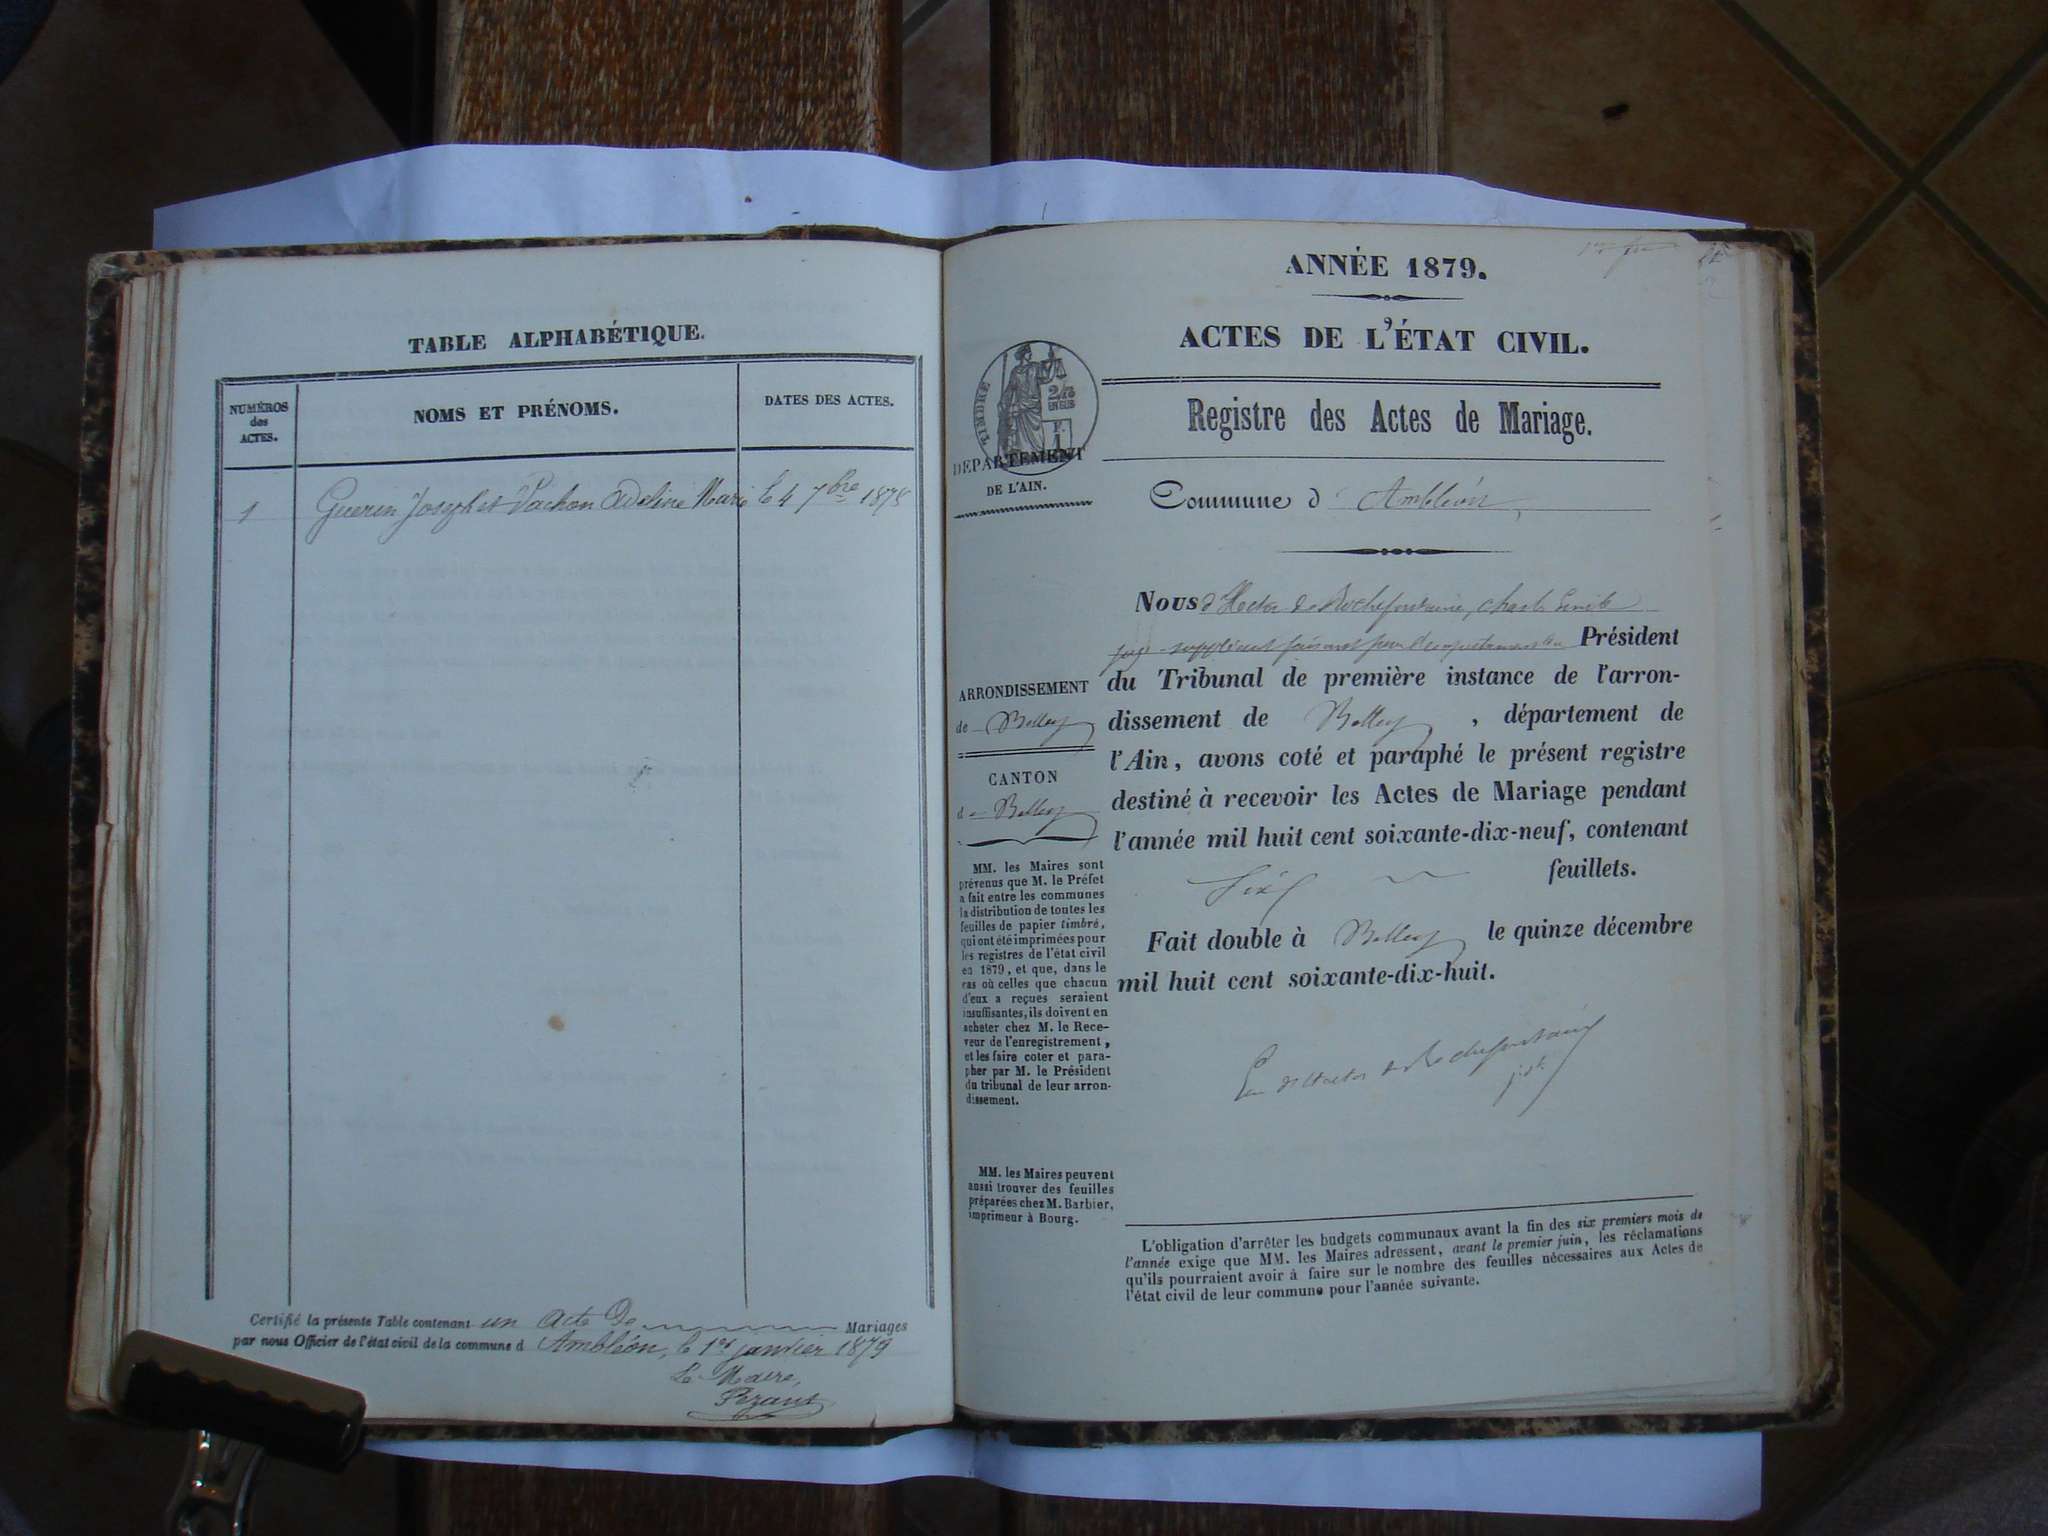 TABLE ALPHABÉTIQUE.
NUMÉROS
des
ACTES.
NOMS ET PRÉNOMS.
DATES DES ACTES.
1
Guerin Joseph et Vachon Adeline Marie
le 4 7bre 1878
Certifié la présente Table contenant un acte de Mariages
par nous Officier de l'état civil de la commune d Ambléon, le 1er janvier 1879
Le Maire,
ANNÉE 1879.
ACTES DE L'ÉTAT CIVIL.
TIMBRE
2/10
EN SUS
DÉPARTEMENT
DE L'AIN.
Registre des Actes de Mariage.
Commune d Ambléon
Nous d'Hector de Rochefontaine, Charles Emile
juge suppléant faisant fonctions de Président
du Tribunal de première instance de l'arron-
dissement de Belley, département de
l'Ain, avons coté et paraphé le présent registre
destiné à recevoir les Actes de Mariage pendant
l'année mil huit cent soixante-dix-neuf, contenant
six feuillets.
Fait double à Belley le quinze décembre
mil huit cent soixante-dix-huit.
d'Hector de Rochefontaine
ARRONDISSEMENT
de Belley
CANTON
de Belley
MM. les Maires sont
prévenus que M. le Préfet
a fait entre les communes
la distribution de toutes les
feuilles de papier timbré,
qui ont été imprimées pour
les registres de l'état civil
en 1879, et que, dans le
cas où celles que chacun
d'eux a reçues seraient
insuffisantes, ils doivent en
acheter chez M. le Rece-
veur de l'enregistrement,
et les faire coter et para-
pher par M. le Président
du tribunal de leur arron-
dissement.
MM. les Maires peuvent
aussi trouver des feuilles
préparées chez M. Barbier,
imprimeur à Bourg.
L'obligation d'arrêter les budgets communaux avant la fin des six premiers mois de
l'année exige que MM. les Maires adressent, avant le premier juin, les réclamations
qu'ils pourraient avoir à faire sur le nombre des feuilles nécessaires aux Actes de
l'état civil de leur commune pour l'année suivante.